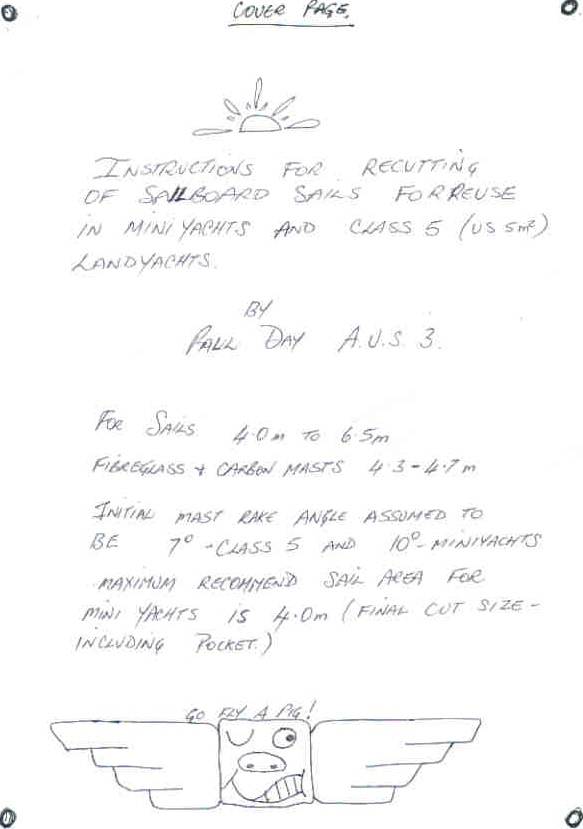 COVER PAGE.
INSTRUCTIONS FOR RECUTTING
OF SAILBOARD SAILS FOR REUSE
IN MINI YACHTS AND CLASS 5 (US 5m²)
LANDYACHTS.
BY
PAUL DAY A.U.S. 3.
FOR SAILS 4.0m TO 6.5m
FIBREGLASS + CARBON MASTS 4.3-4.7m
INITIAL MAST RAKE ANGLE ASSUMED TO
BE 7° -CLASS 5 AND 10°-MINIYACHTS
MAXIMUM RECOMMEND SAIL AREA FOR
MINI YACHTS IS 4.0m (FINAL CUT SIZE -
INCLUDING POCKET.)
GO FLY A PIG!